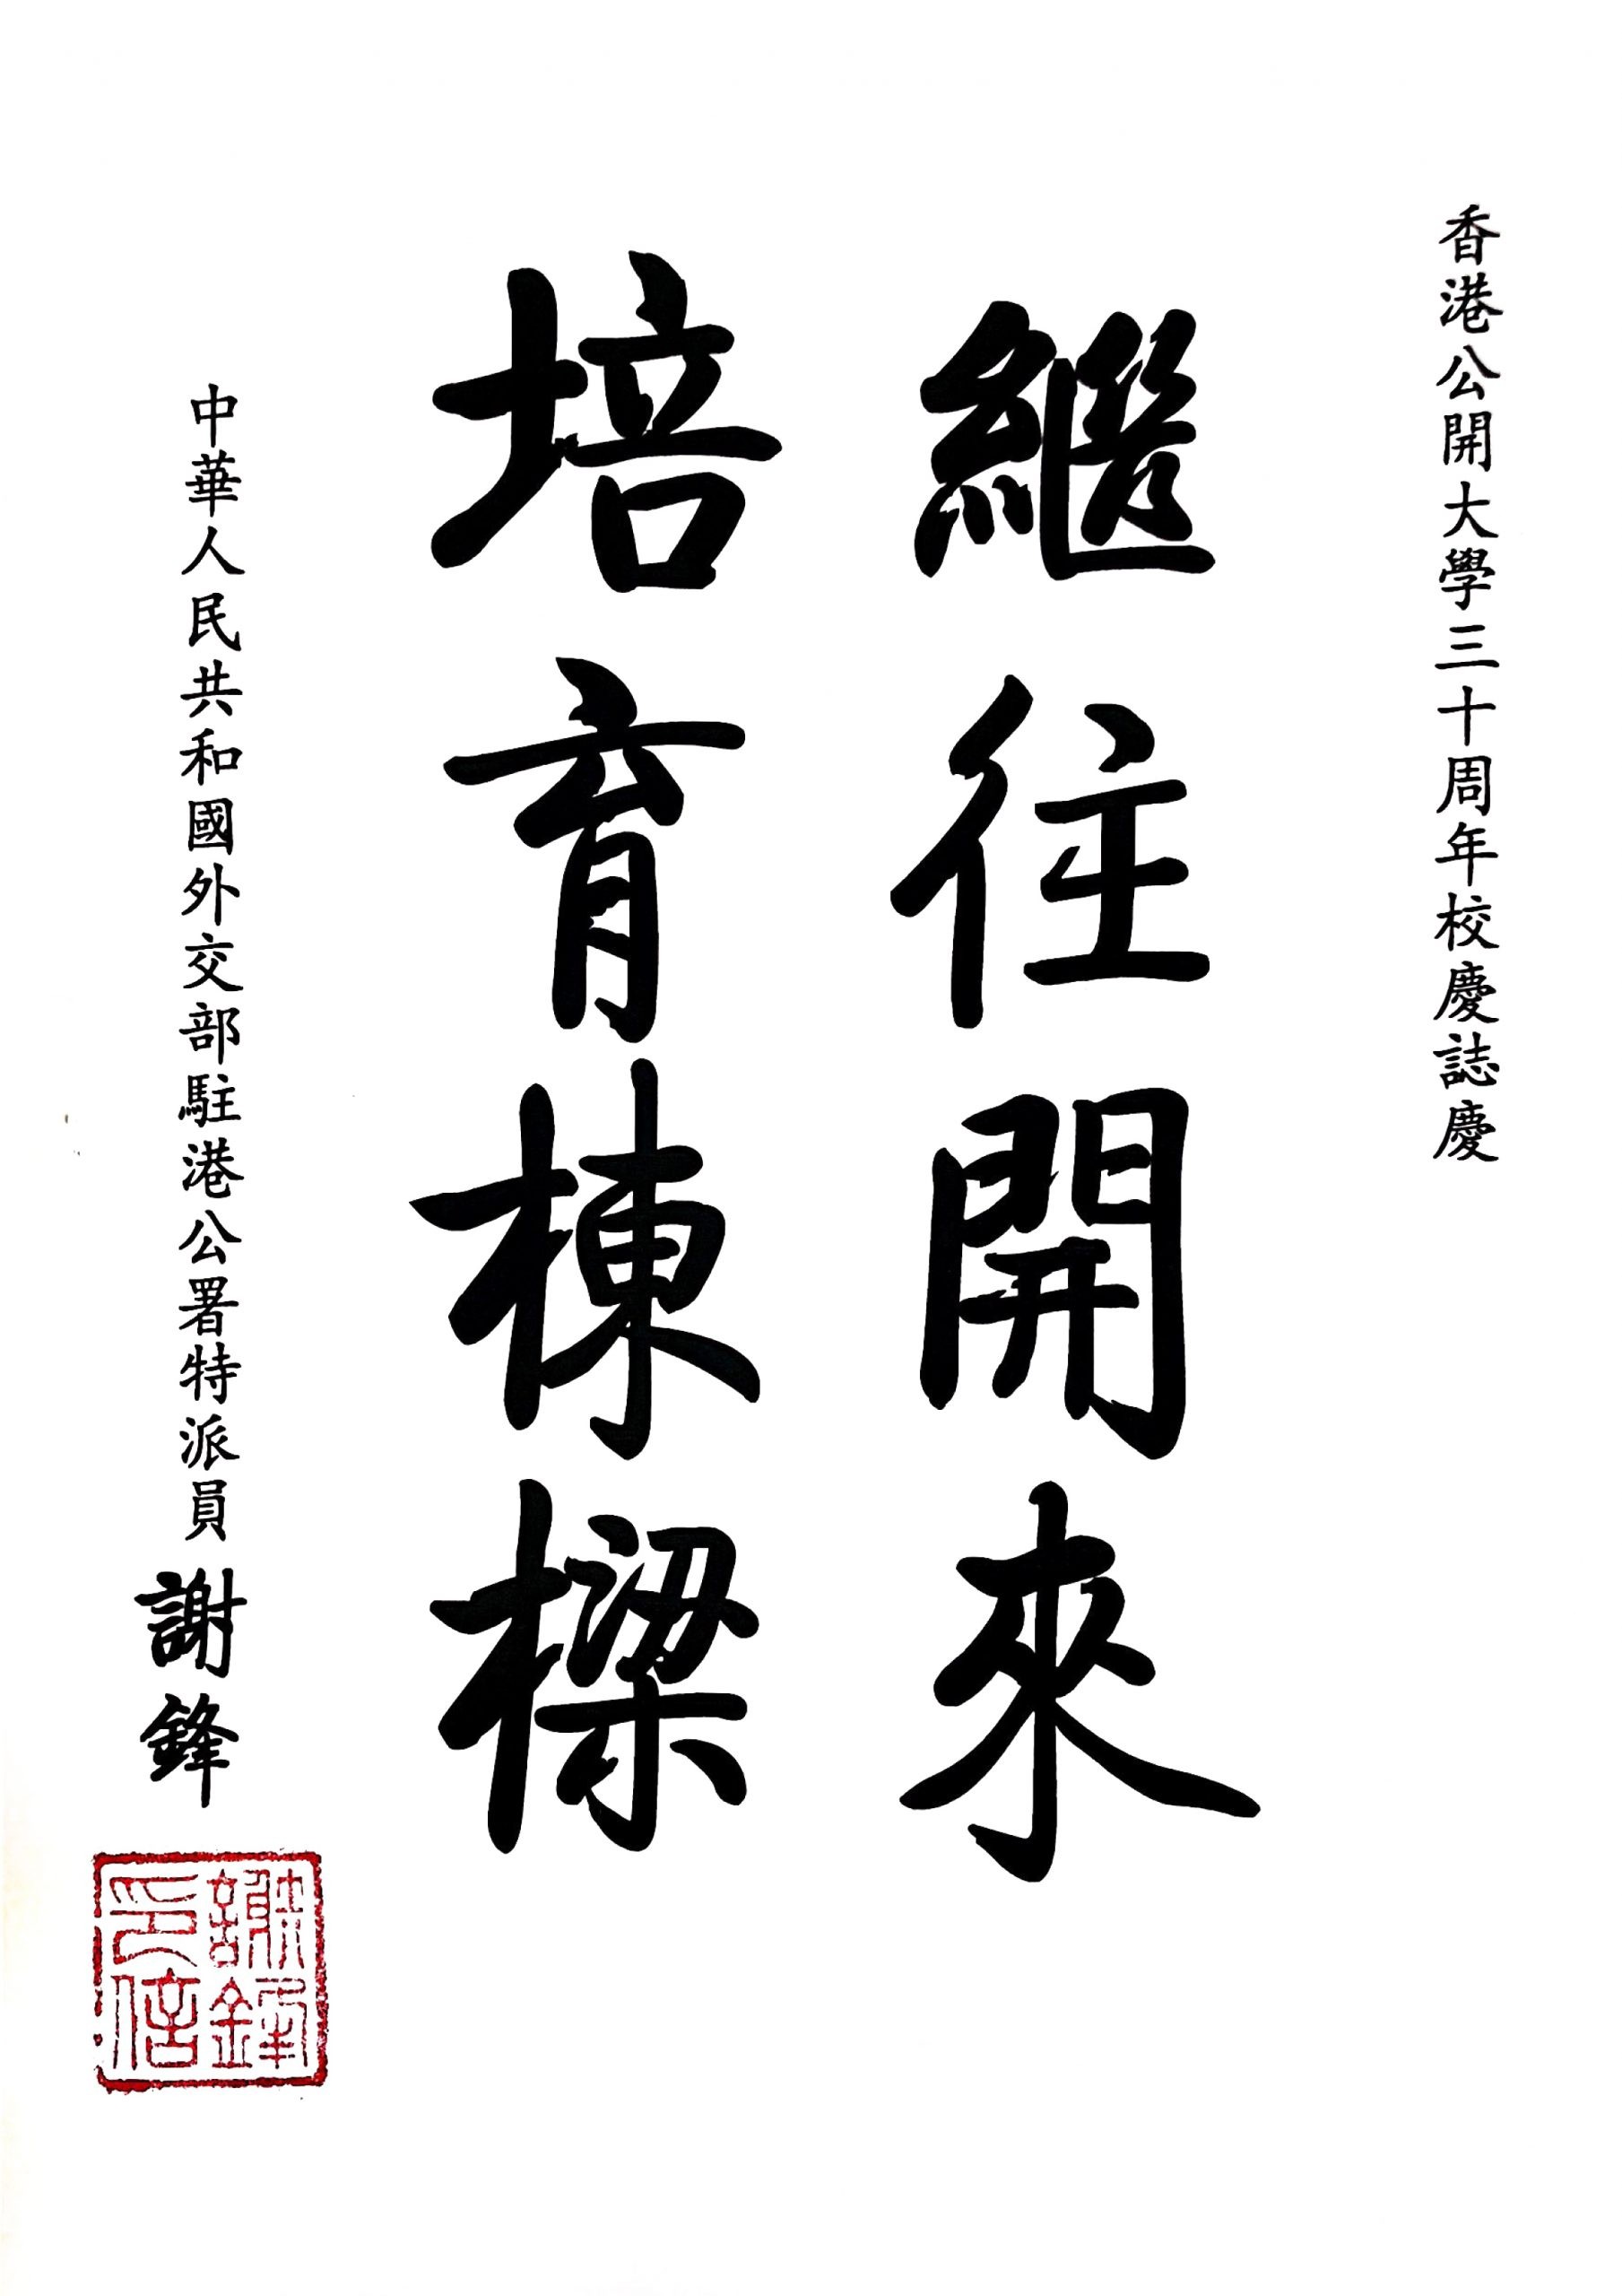 香港公開大學三十周年校慶誌慶
繼往開來
培育棟樑
中華人民共和國外交部駐港公署特派員 謝鋒
謝鋒
印信